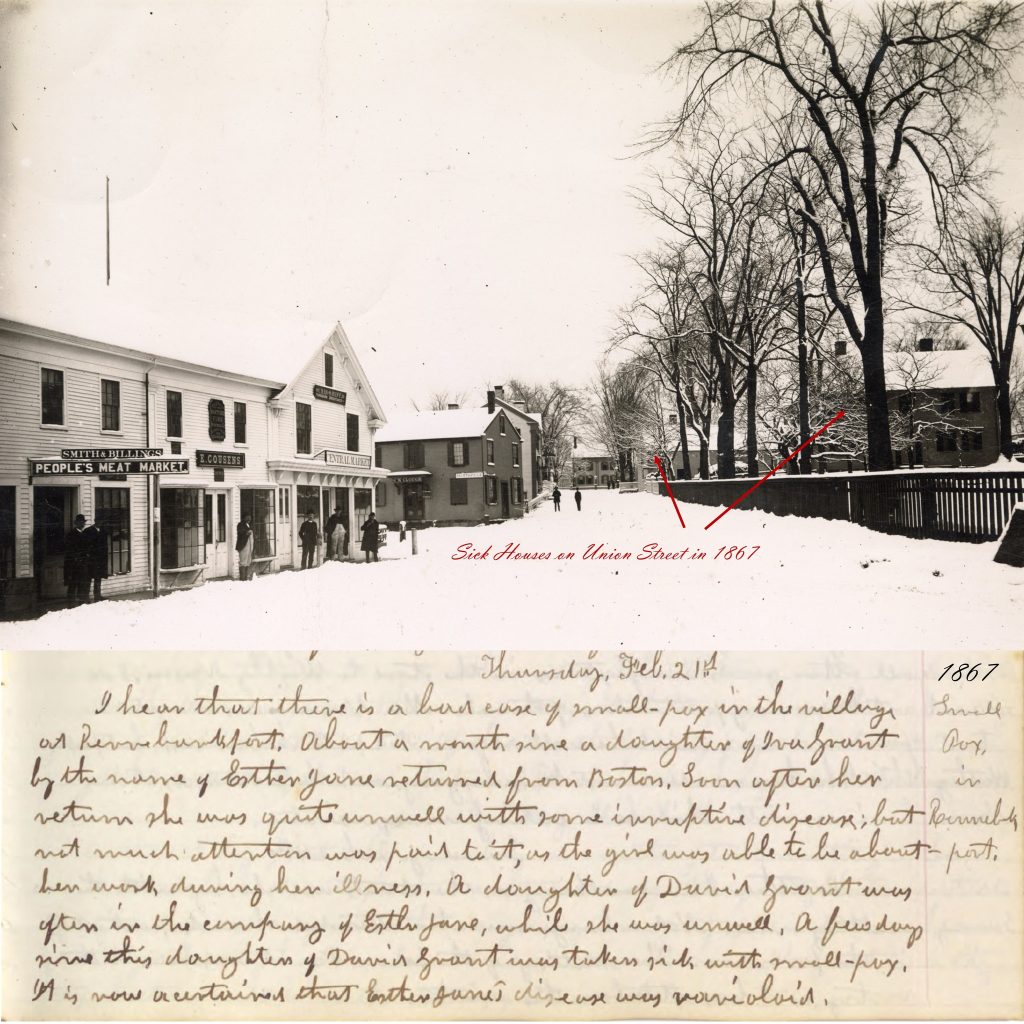 SMITH & BILLINGS
PEOPLE'S MEAT MARKET
E. COUSENS
CENTRAL MARKET
Sick Houses on Union Street in 1867
Thursday, Feb. 21st
1867
I hear that there is a bad case of small-pox in the village
at Kennebunkport. About a month since a daughter of Iva Grant
by the name of Esther Jane returned from Boston. Soon after her
return she was quite unwell with some irruptive disease; but
not much attention was paid to it, as the girl was able to be about
her work during her illness. A daughter of David Grant was
often in the company of Esther Jane, while she was unwell. A few days
since this daughter of David Grant was taken sick with small-pox.
It is now acertained that Esther Jane's disease was varioloid.
Small
Pox,
in
Kennebunk
-port.